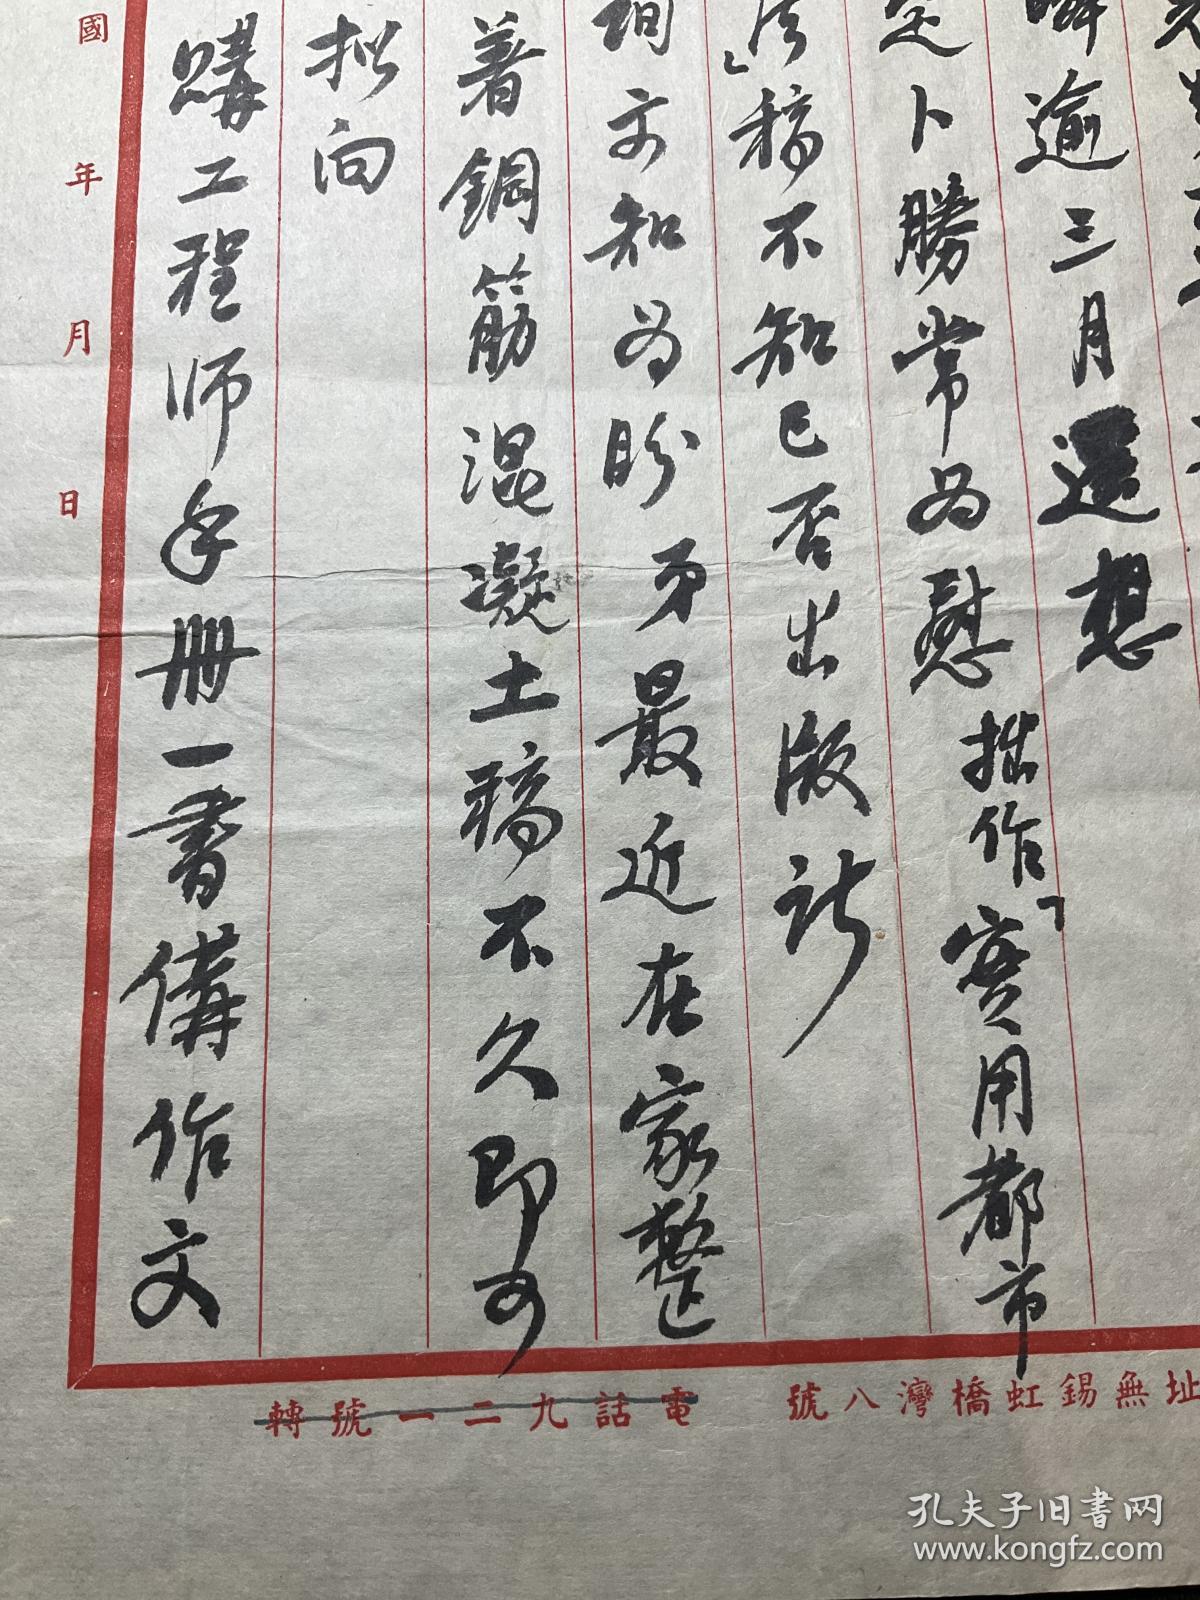 瞬逾三月遥想
定卜勝常為慰拙作「實用都市
法」稿不知已否出版祈
詢示知為盼弟最近在家整
著鋼筋混凝土稿不久即可
拟向
購工程师手册一書備作文
國 年 月 日
址無錫虹橋灣八號 電話九二一號轉
孔夫子旧书网
www.kongfz.com